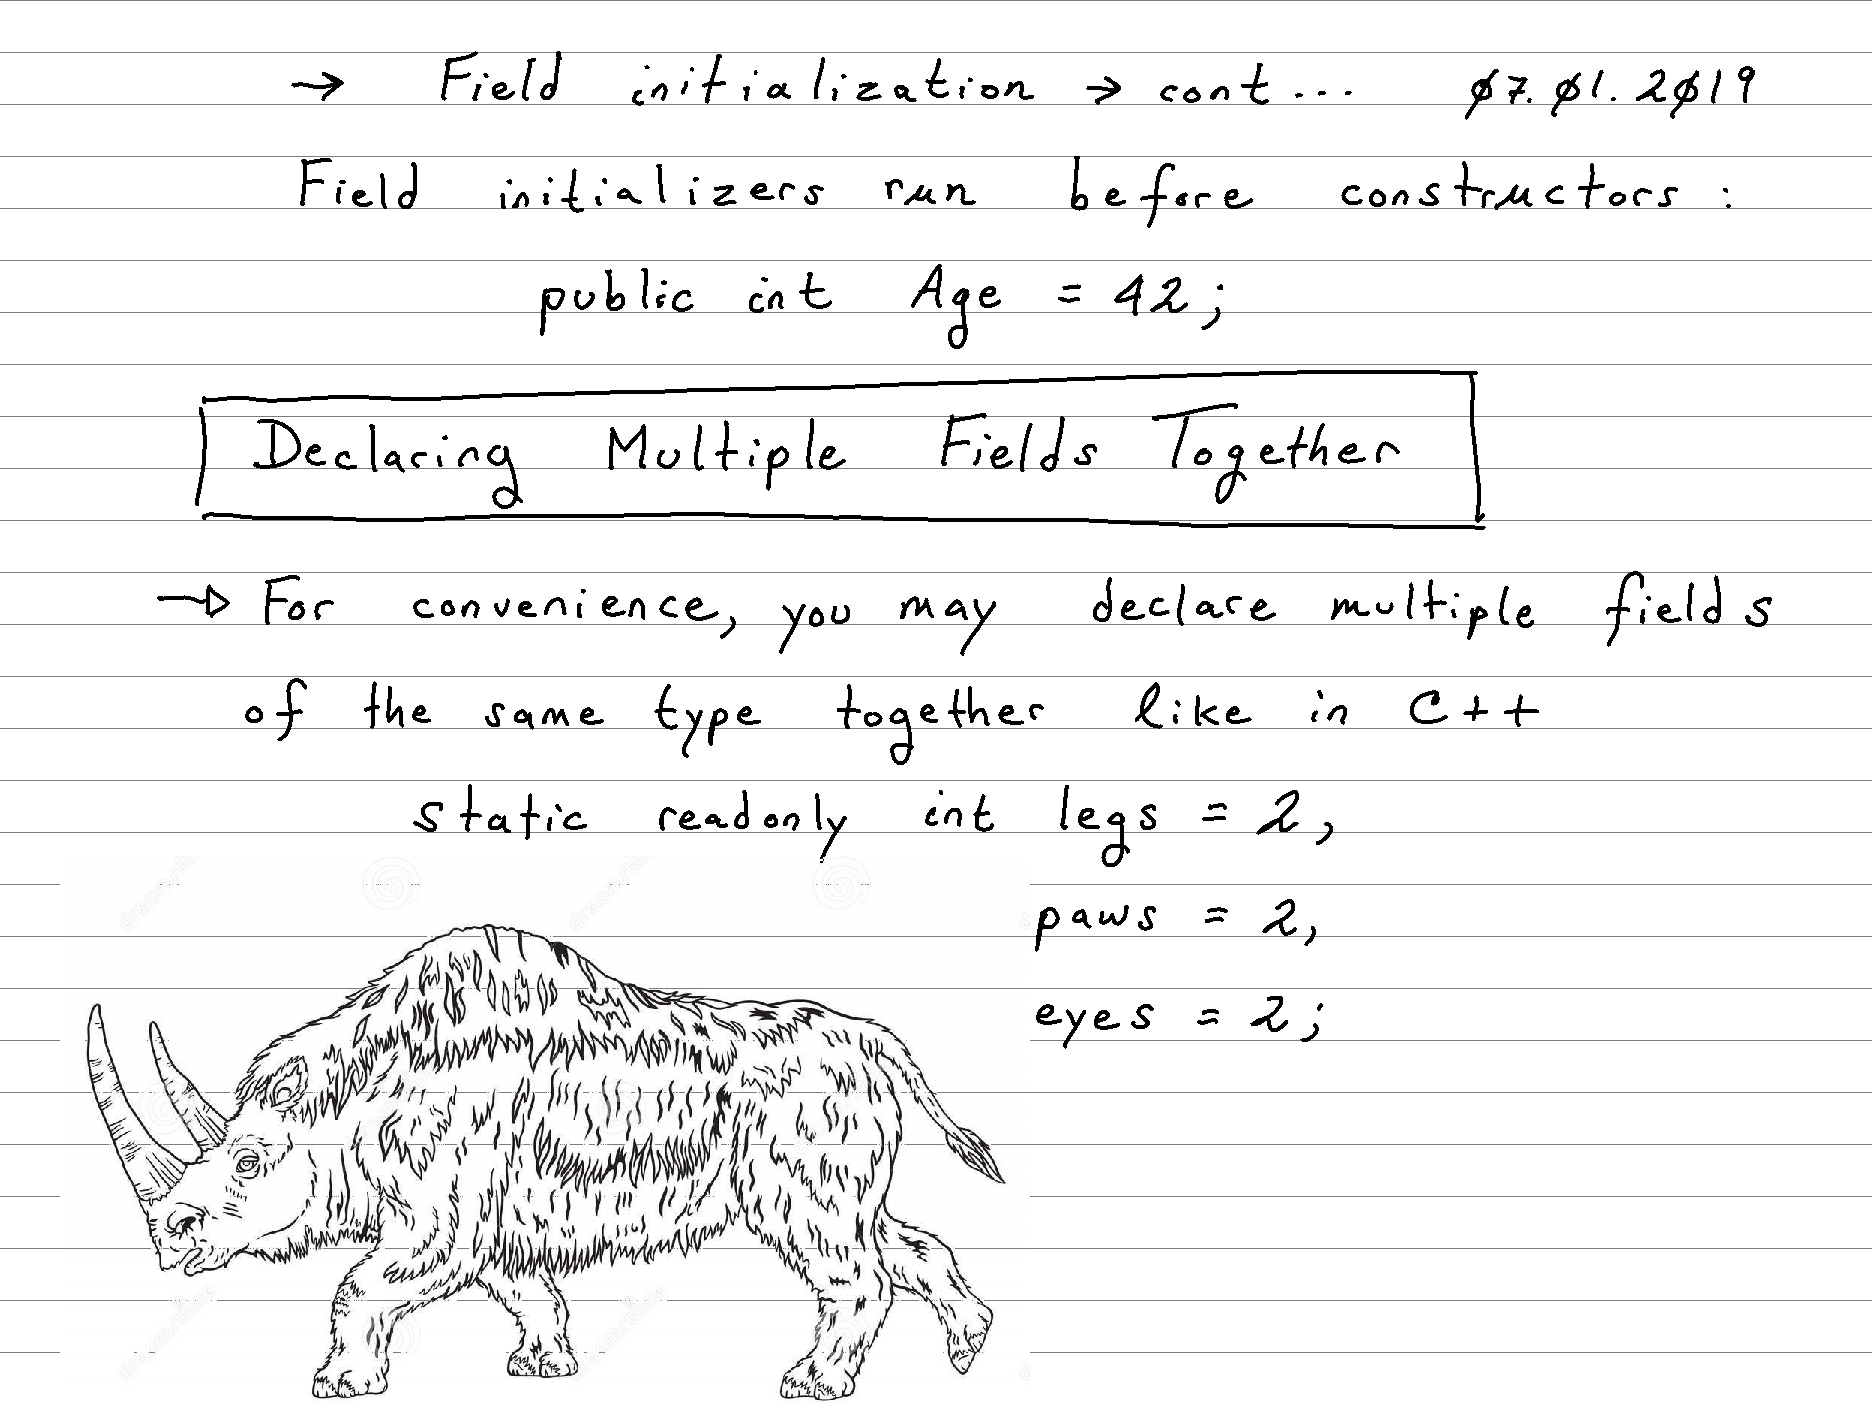 → Field initialization → cont... 07.01.2019
Field initializers run before constructors:
public int Age = 42;
Declaring Multiple Fields Together
→ For convenience, you may declare multiple fields
of the same type together like in C++
static readonly int legs = 2,
paws = 2,
eyes = 2;